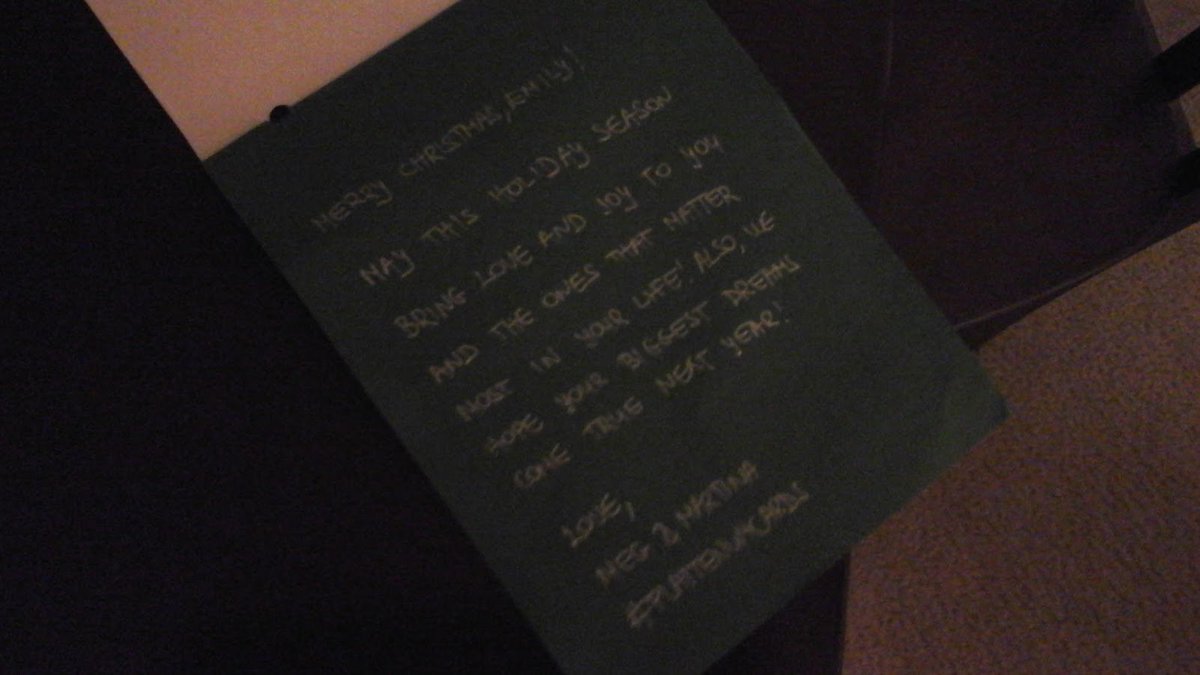 MERRY CHRISTMAS, EMILY!
MAY THIS HOLIDAY SEASON
BRING LOVE AND JOY TO YOU
AND THE ONES THAT MATTER
MOST IN YOUR LIFE! ALSO, WE
HOPE YOUR BIGGEST DREAMS
COME TRUE NEXT YEAR!
LOVE,
MEG & MARTINA